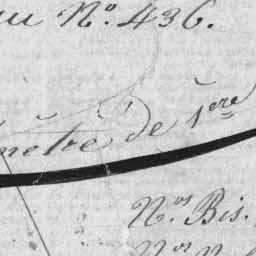 au N.º 436.
mètre de 1.ere
N.os Bis.
N.os